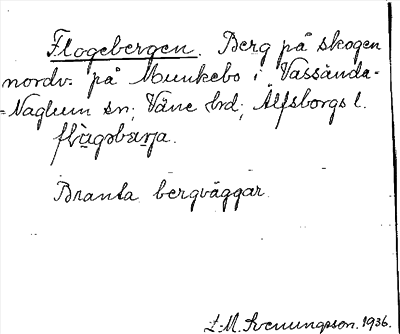 Flogebergen. Berg på skogen
nordv. på Munkebo i Vassända-
-Naglum sn; Väne hd; Älfsborgs l.
Branta bergväggar.
L.M. Svenungsson. 1936.